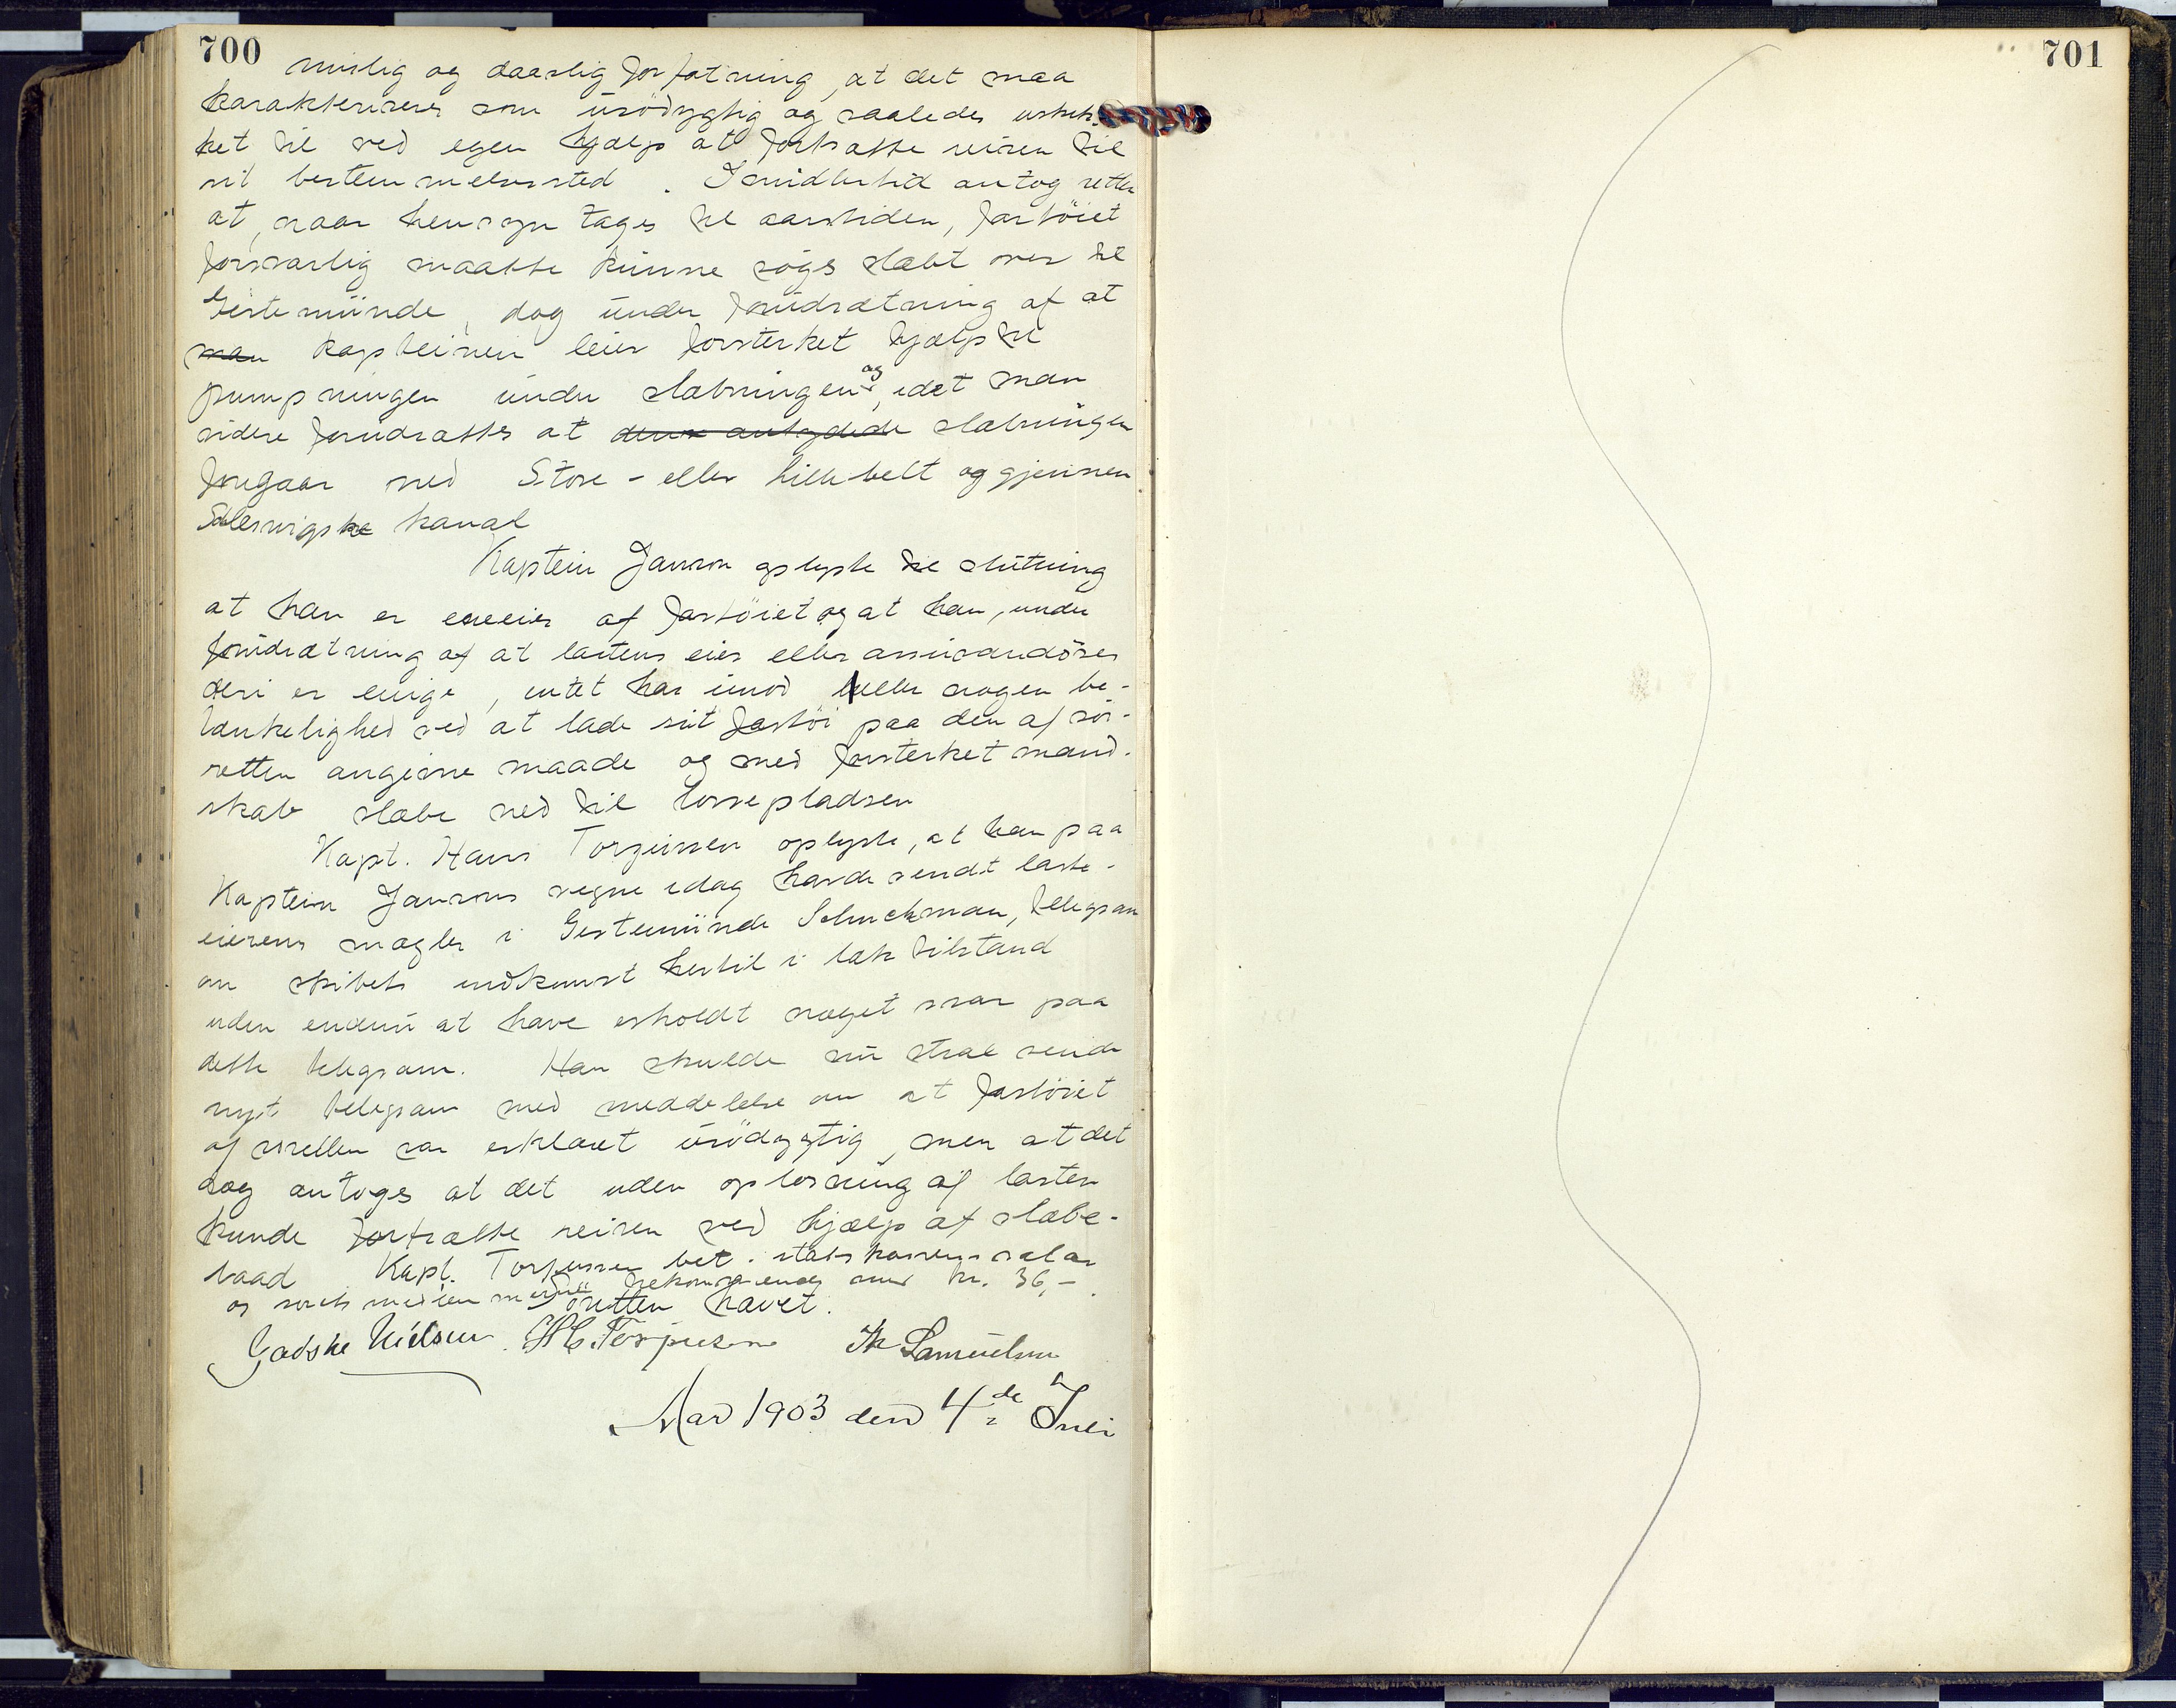 700
701
muslig og daarlig forfatning, at det maa
karakteriseres som usödygtig og saaledes uskik-
ket til ved egen hjælp at fortsætte reisen til
sit bestemmelsessted. Imidlertid antog retten
at, naar hensyn tages til aarstiden, fartöiet
forsvarlig maatte kunne söges slæbt over til
Gestemünde, dog under forudsætning af at
man kapteinen leier forsterket hjælp til
pumpningen under slæbningen og, idet man
videre forudsættes at den antydede slæbningen
foregaar ned Store- eller Lillebelt og gjennem
Slesvigske kanal
Kaptein Janson oplyste til slutning
at han er eneeier af fartöiet og at han, under
forudsætning af at lastens eier eller assurandörer
deri er enige, intet har imod eller nogen be-
tænkelighed ved at lade sit fartöi paa den af sö-
retten angivne maade og med forsterket mand-
skab slæbe ned til lossepladsen
Kapt. Hans Torjussen oplyste, at han paa
Kaptein Jansons vegne idag havde sendt laste-
eierens mægler i Gestemünde Schuckman, telegram
om skibets indkomst hertil i læk tilstand
uden endnu at have erholdt noget svar paa
dette telegram. Han skulde nu strax sende
nyt telegram med meddelelse om at fartöiet
af söretten var erklæret usödygtig, men at det
dog antoges at det uden oplosning af lasten
kunde fortsætte reisen ved hjælp af slæbe-
baad Kapt. Torjussen bet. statskassens salær
og med kr. 36,-
Söretten hævet.
Gadske Nielsen H C. Torjusen Th Samuelsen
Aar 1903 den 4de Juli